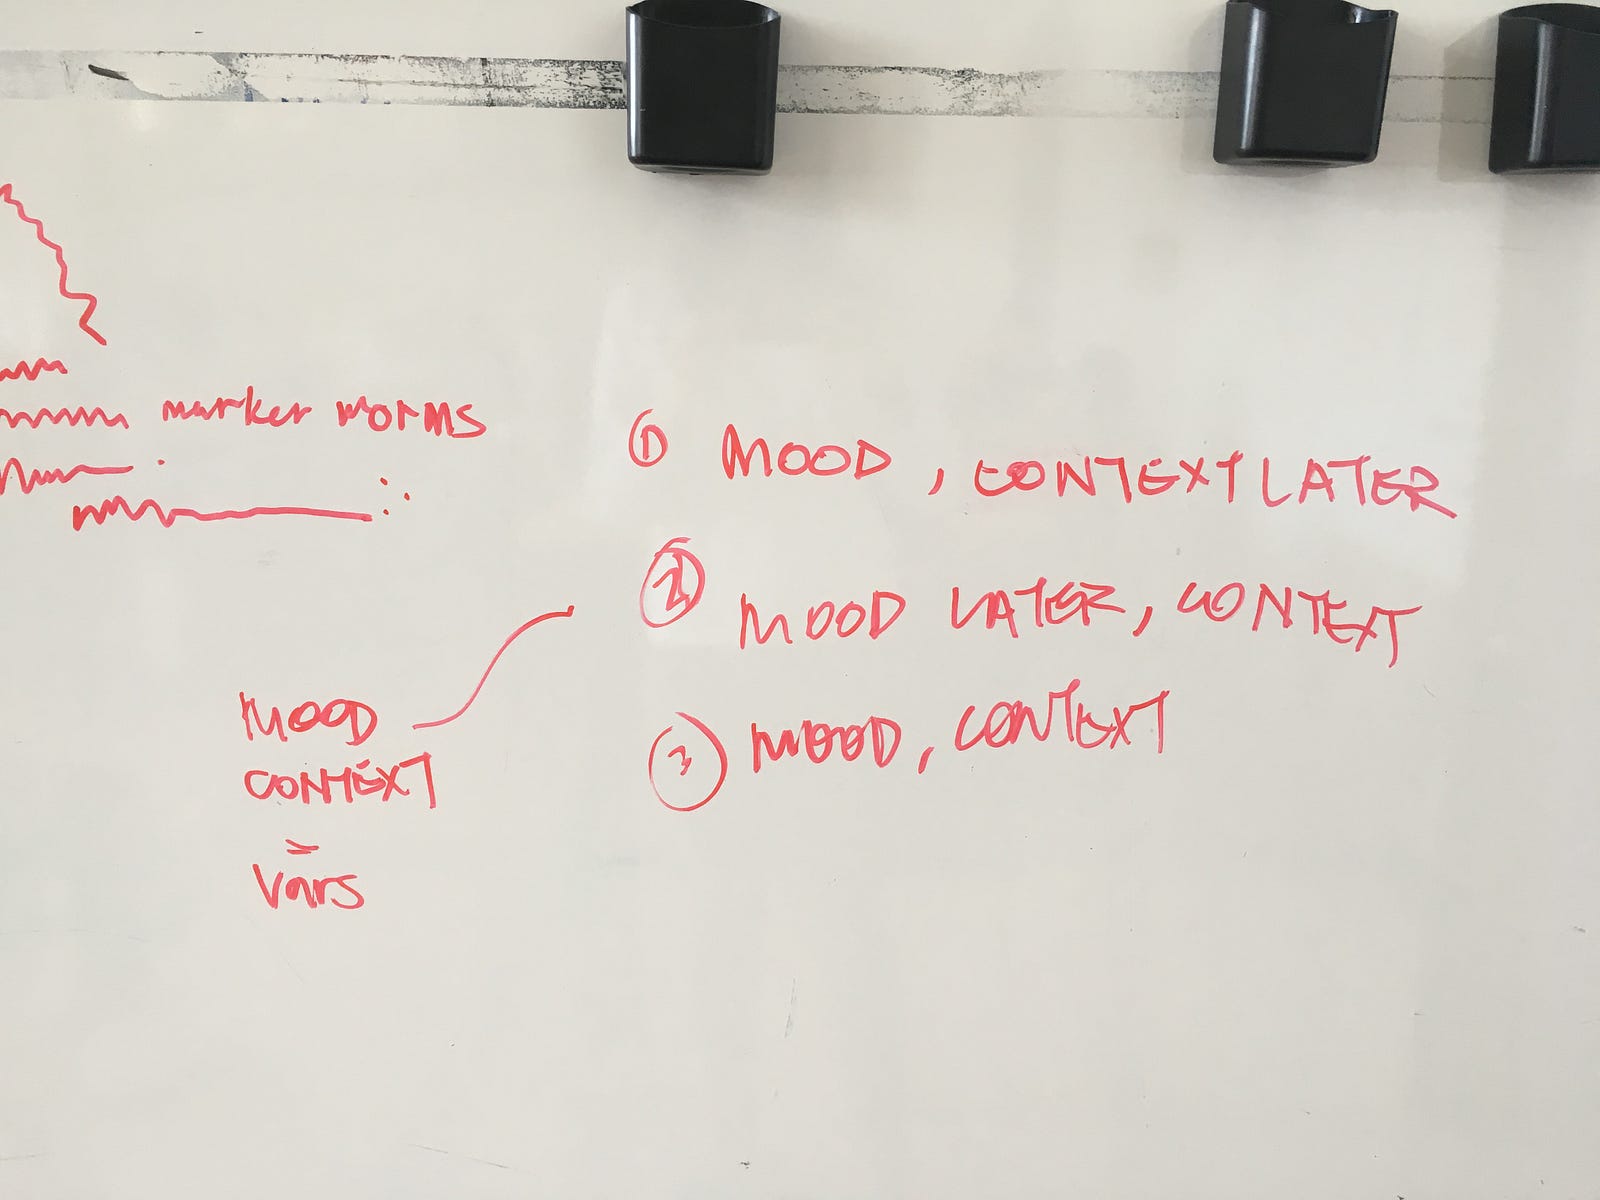 marker worms
① MOOD, CONTEXT LATER
② MOOD LATER, CONTEXT
③ MOOD, CONTEXT
MOOD
CONTEXT
=
Vars